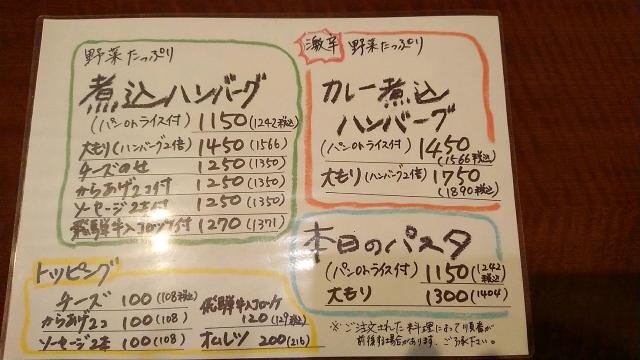 野菜たっぷり
煮込ハンバーグ
(パンorライス付) 1150(1242税込)
大もり(ハンバーグ2倍) 1450(1566)
チーズのせ 1250(1350)
からあげ2コ付 1250(1350)
ソーセージ2本付 1250(1350)
飛騨牛入コロッケ付 1270(1371)
激辛 野菜たっぷり
カレー煮込
ハンバーグ
(パンorライス付) 1450
(1566税込)
大もり(ハンバーグ2倍) 1750
(1890税込)
本日のパスタ
(パンorライス付) 1150(1242税込)
大もり 1300(1404)
トッピング
チーズ 100(108税込)
からあげ2コ 100(108)
ソーセージ2本 100(108)
飛騨牛入コロッケ
120(129税込)
オムレツ 200(216)
※ご注文された料理によって順番が
前後する場合があります、ご了承下さい。